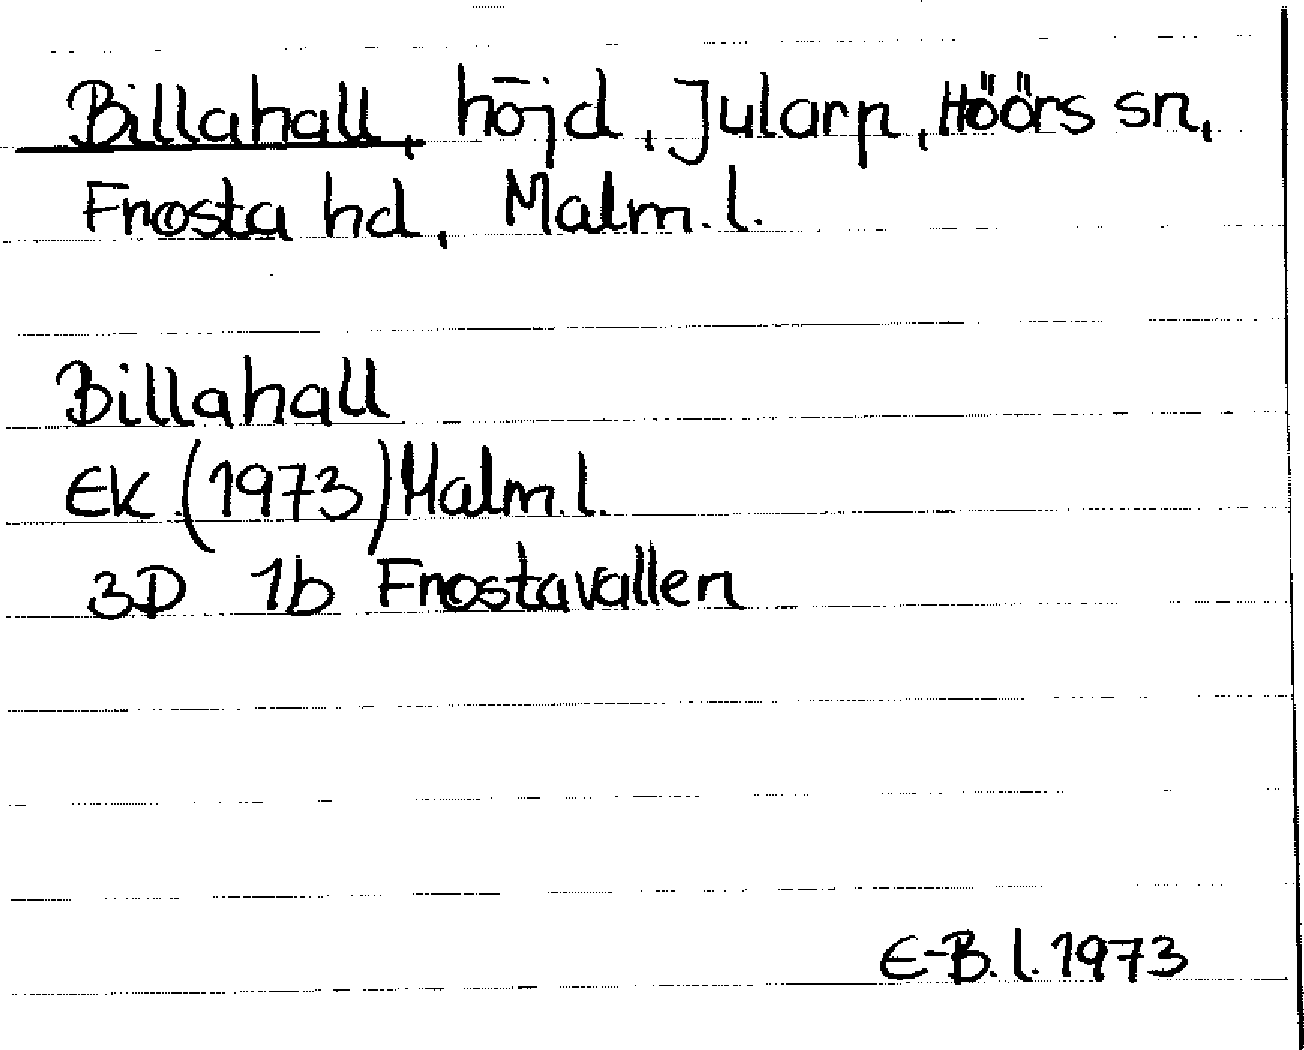 Billahall, höjd, Jularp, Höörs sn,
Frosta hd, Malm. l.
Billahall
EK (1973) Malm. l.
3D 1b Frostavallen
E-B. l. 1973